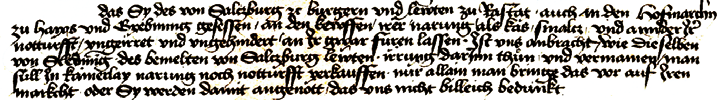 das Sy des von Saltzburg ze burgern und lewten zu Rastat auch in den Hofmarchn
zu Haws und Gröbming gesessen / an den berüffen irer narung als kas smaltz und annder ir
notturfft / ungeirret und ungehindert an Ir gewar furen lassen / Ist uns anbracht / wie dieselben
von Sleming des bemelten von Saltzburg lewten irrung darinn thun und vermainen / man
sull in kainerlay narung noch notturfft verkauffen nur allain man bringe das vor auf Iren
markcht oder Sy werden damit angenött / das uns nicht billeich bedunkt